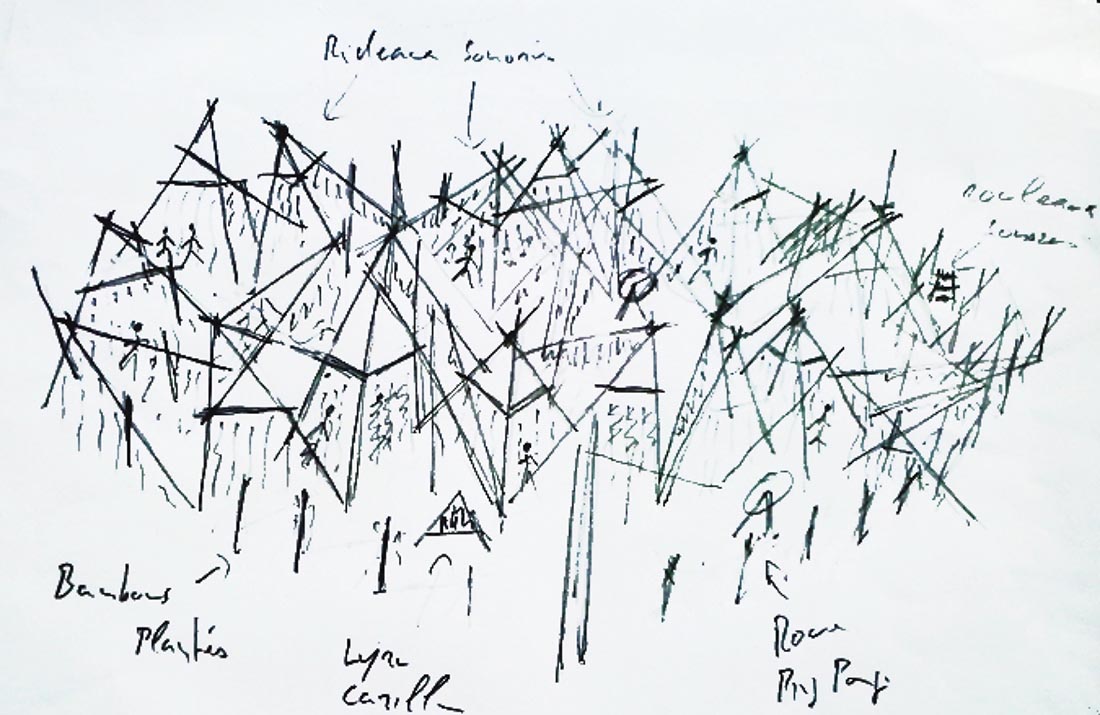 Rideaux Sonores
rouleaux
Bambous
Plantés
Lyre
Carillon
Roue
Ping Pong